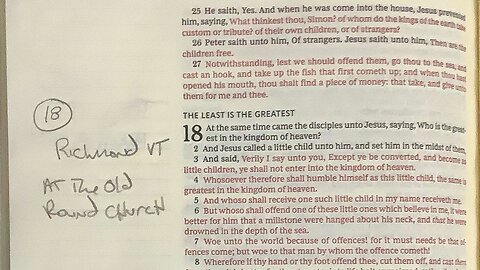 25 He saith, Yes. And when he was come into the house, Jesus prevented
him, saying, What thinkest thou, Simon? of whom do the kings of the earth take
custom or tribute? of their own children, or of strangers?
26 Peter saith unto him, Of strangers. Jesus saith unto him, Then are the
children free.
27 Notwithstanding, lest we should offend them, go thou to the sea, and
cast an hook, and take up the fish that first cometh up; and when thou hast
opened his mouth, thou shalt find a piece of money: that take, and give unto
them for me and thee.
THE LEAST IS THE GREATEST
18 At the same time came the disciples unto Jesus, saying, Who is the great-
est in the kingdom of heaven?
2 And Jesus called a little child unto him, and set him in the midst of them,
3 And said, Verily I say unto you, Except ye be converted, and become as
little children, ye shall not enter into the kingdom of heaven.
4 Whosoever therefore shall humble himself as this little child, the same is
greatest in the kingdom of heaven.
5 And whoso shall receive one such little child in my name receiveth me.
6 But whoso shall offend one of these little ones which believe in me, it were
better for him that a millstone were hanged about his neck, and that he were
drowned in the depth of the sea.
7 Woe unto the world because of offences! for it must needs be that of-
fences come; but woe to that man by whom the offence cometh!
8 Wherefore if thy hand or thy foot offend thee, cut them off, and cast them
18
RICHMOND VT
AT THE OLD
ROUND CHURCH